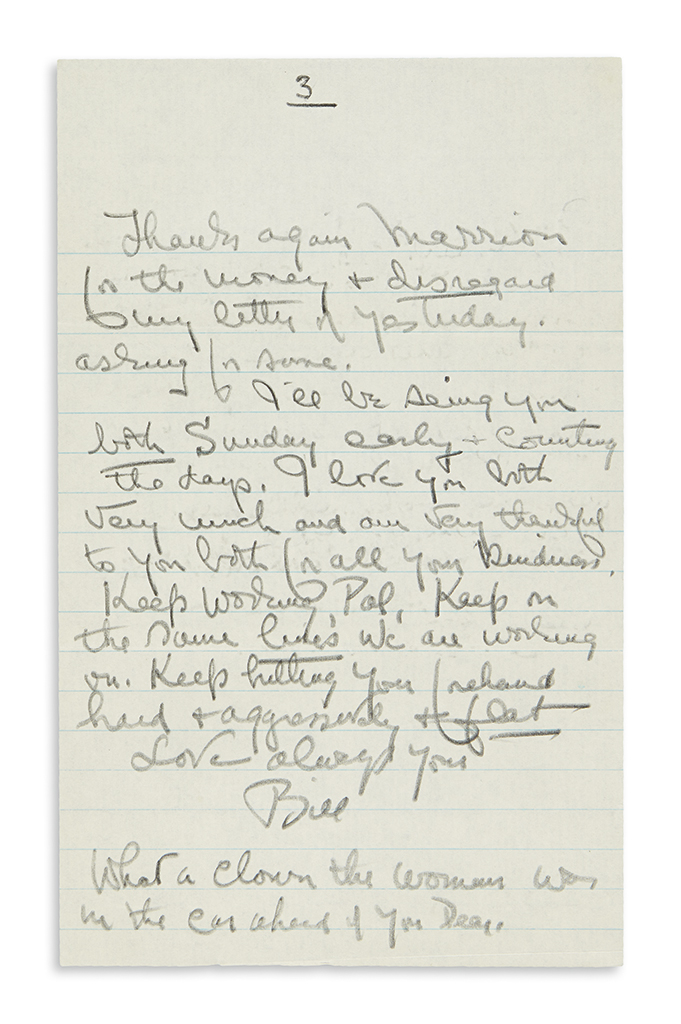 3
Thanks again Marrion
for the money + disregard
my letter of yesterday.
asking for some.
I'll be seing you
both Sunday early + Counting
the days. I love you both
very much and am very thankful
to you both for all your kindness.
Keep working, Pal, Keep on
the same lines we are working
on. Keep hitting your forehand
hard + aggressively + flat
Love always your
Bill
What a clown the woman was
in the car ahead of you Dear.